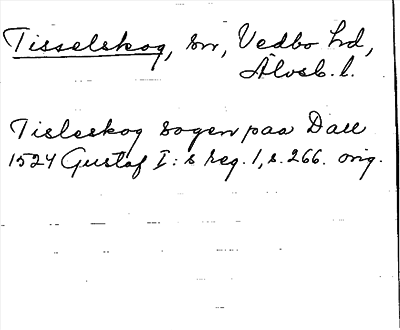 Tisselskog, sn, Vedbo hd,
Älvsb. l.
Tisleskog sogen paa Dall
1524 Gustaf I:s reg. 1, s. 266. orig.